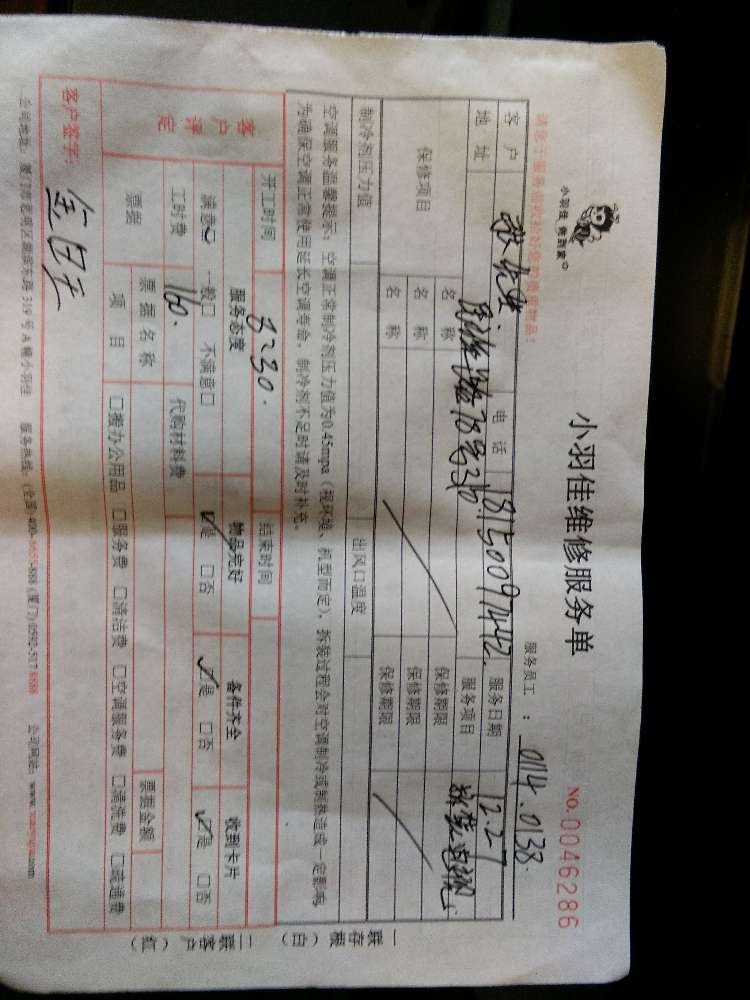 小羽佳 做到家
小羽佳维修服务单
NO.0046286
服务员工 ： 0114.0138
客户 电话 18150097442 服务日期 12-27
地址 服务项目
保修项目 名称 保修期限
名称 保修期限
名称 保修期限
制冷剂压力值 出风口温度
空调服务温馨提示：空调正常制冷剂压力值为0.45mpa（视环境、机型而定），拆装过程会对空调制冷或制热造成一定影响，
为确保空调正常使用延长空调寿命，制冷剂不足时请及时补充。
开工时间 8:30. 结束时间
客户评定 服务态度 物品完好 备件齐全 收到卡片
满意 一般□ 不满意□ ☑是 □否 ☑是 □否 ☑是 □否
工时费 160. 代购材料费
票据 票据名称 票据金额
项目 □搬办公用品 □服务费 □清洁费 □空调服务费 □清洗费 □疏通费
客户签字：
公司地址：厦门市思明区湖滨东路319号A幢小羽佳 服务热线：(全国)400- -8888 (厦门)0592-5178888 公司网站：
一联存根（白） 二联客户（红）